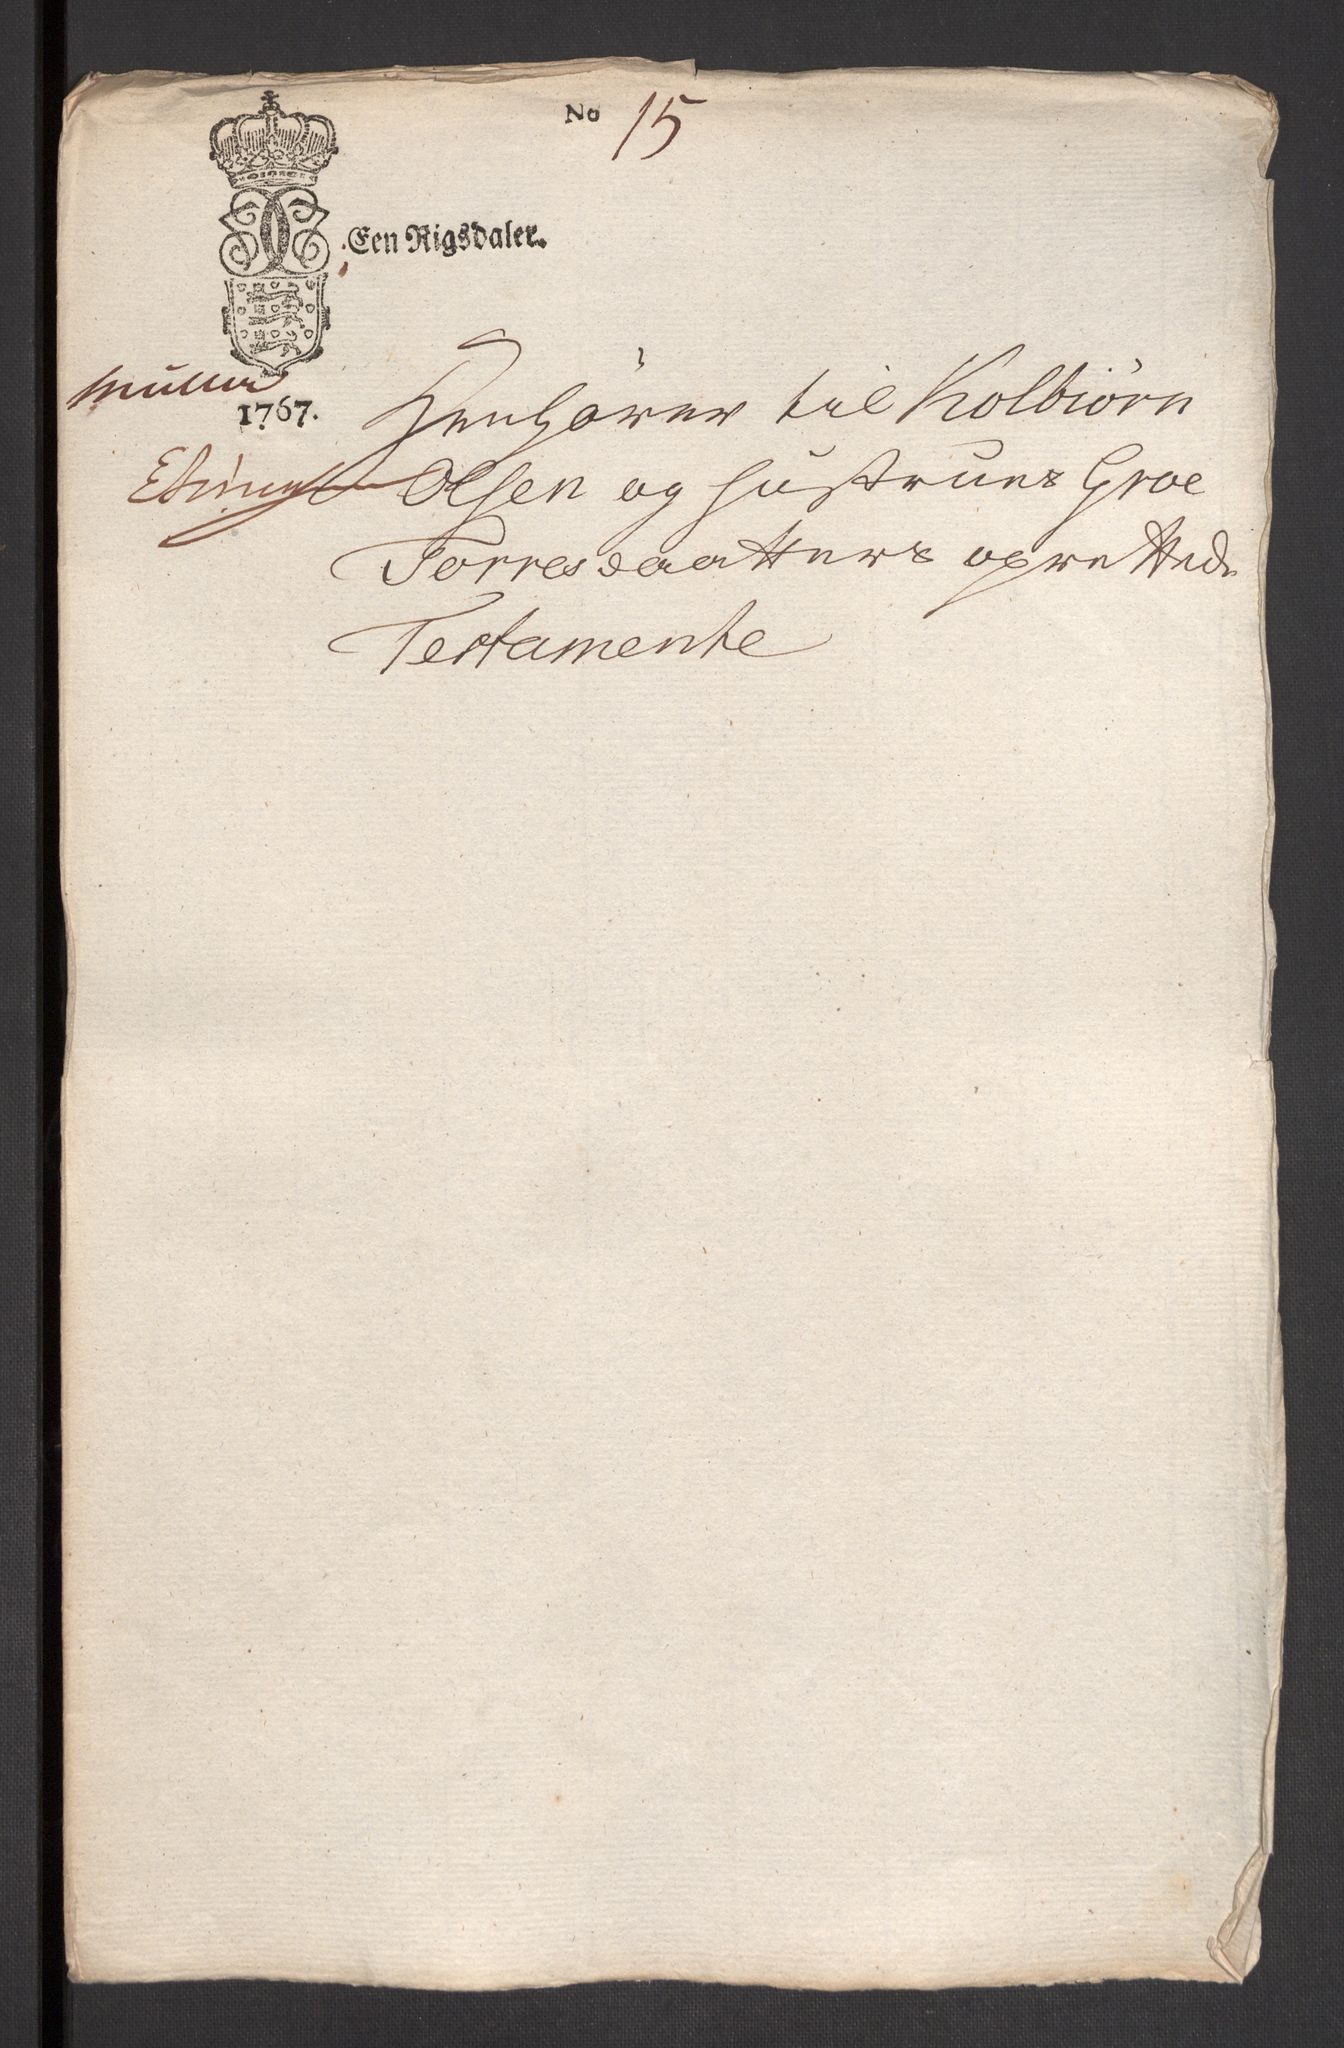 No 15
Een Rigsdaler.
Müller
1767.
Henhörer til Kolbiörn
Olsen og Hustrues Groe
Torresdaatters oprettede
Testamente